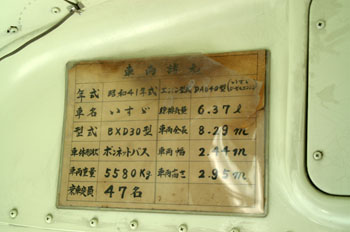 車両諸元
年式 昭和41年式 エンジン型式 DA640型
車名 いすゞ 総排気量 6.37ℓ
型式 BXD30型 車両全長 8.29m
車体形状 ボンネットバス 車両幅 2.44m
車両重量 5580Kg 車両高さ 2.95m
乗車定員 47名